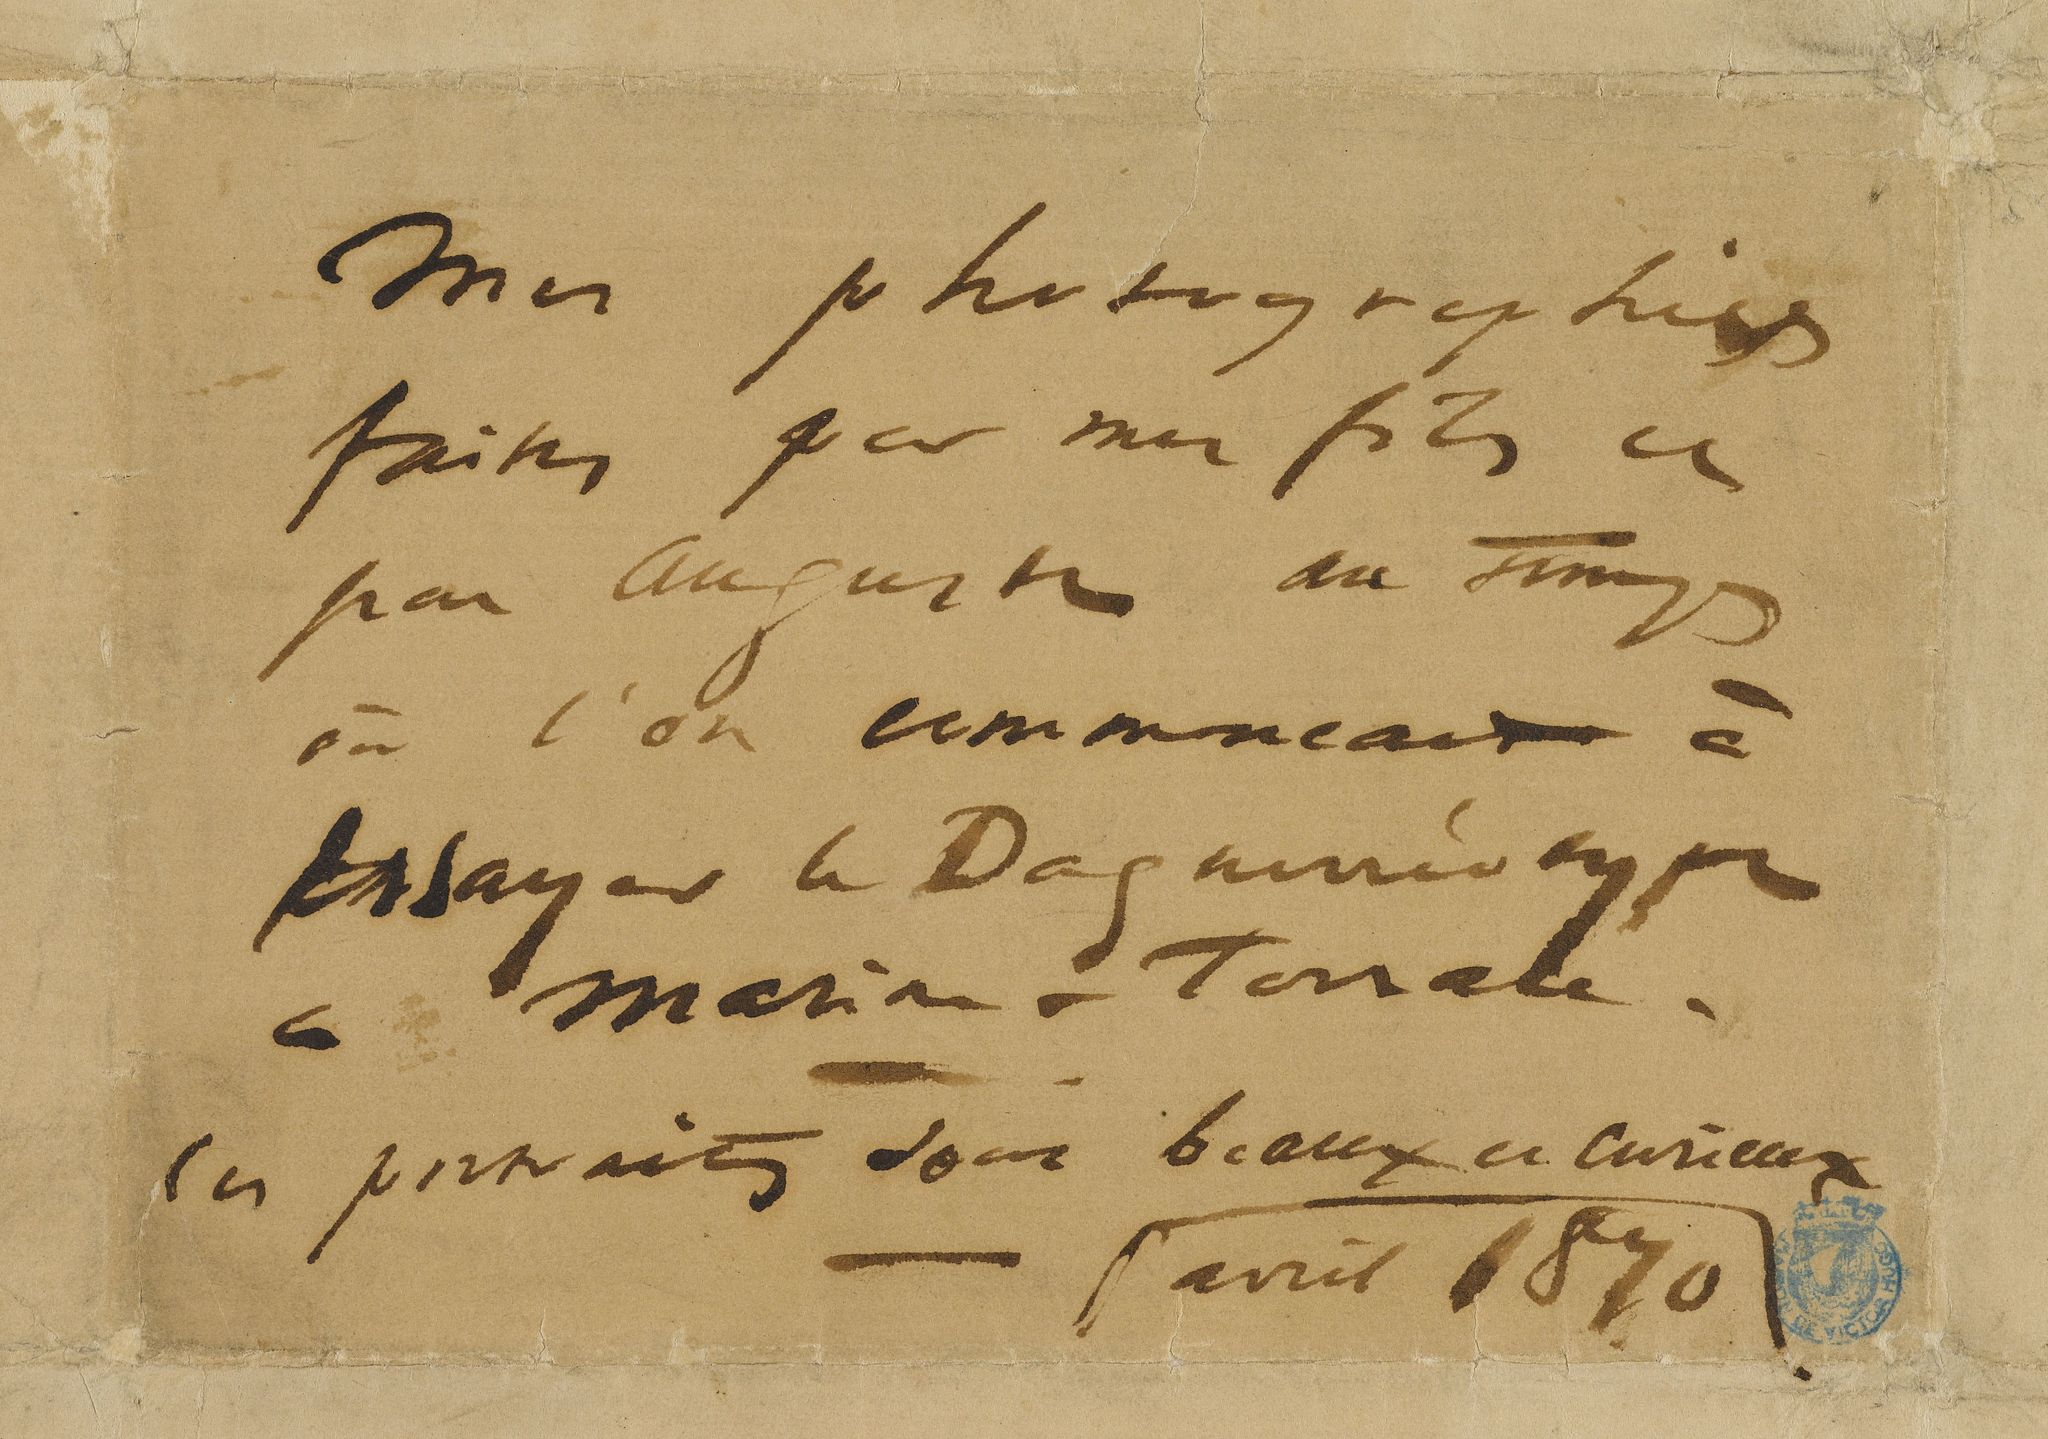 Mes photographies
faites par mes fils et
par Auguste au temps
où l'on commençait à
essayer le Daguerréotype
à Marine-Terrace.
ces portraits sont beaux et curieux
avril 1870
MAISON DE VICTOR HUGO